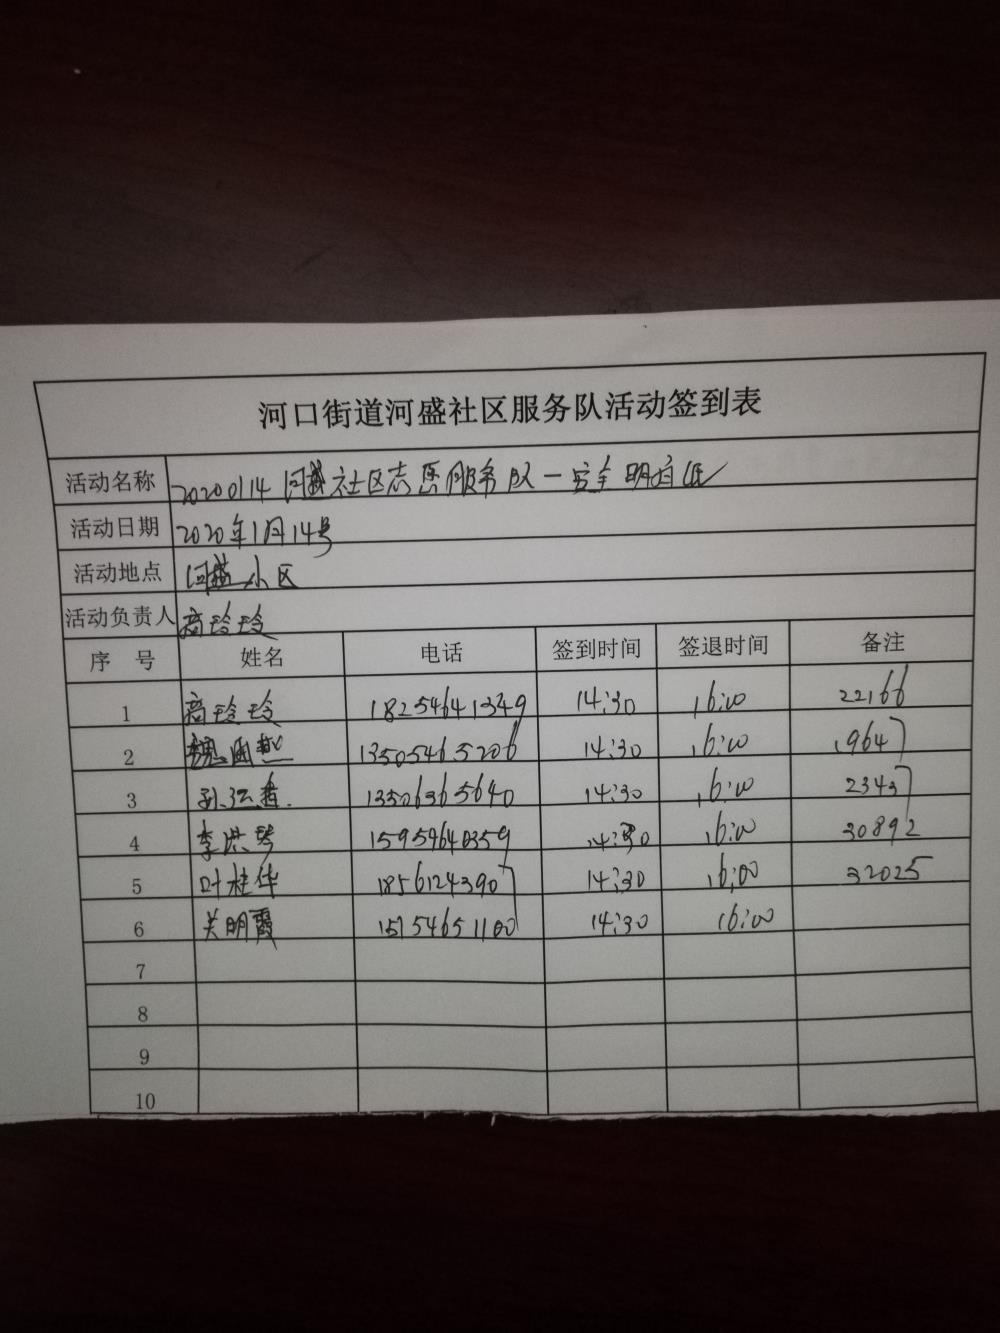 河口街道河盛社区服务队活动签到表
活动名称 20200114河盛社区志愿服务队一安全明白纸
活动日期 2020年1月14号
活动地点 河盛小区
活动负责人 高玲玲
序 号 姓名 电话 签到时间 签退时间 备注
1 高玲玲 18254641349 14:30 16:00 22166
2 魏国燕 13505465206 14:30 16:00 19647
3 孙 13506365640 14:30 16:00 23437
4 李洪琴 15959460359 14:30 16:00 30892
5 叶桂华 18561243907 14:30 16:00 32025
6 关明霞 15154651100 14:30 16:00
7
8
9
10